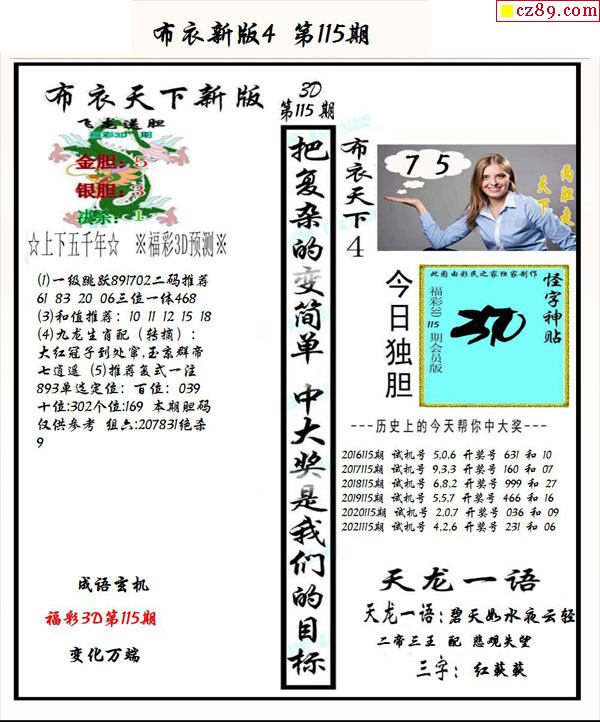 cz89.com
布衣新版4 第115期
布衣天下新版
飞龙送胆
福彩3D 期
金胆：5
银胆：3
决杀：1
☆上下五千年☆ ※福彩3D预测※
(1)一级跳跃891702二码推荐
61 83 20 06三位一体468
(3)和值推荐: 10 11 12 15 18
(4)九龙生肖配（转摘）:
大红冠子到处窜,玉京群帝
七逍遥 (5)推荐复式一注
893单选定位: 百位: 039
十位:302个位:169 本期胆码
仅供参考 组六:207831绝杀
9
成语玄机
福彩3D第115期
变化万端
3D
第115期
把复杂的变简单 中大奖是我们的目标
布衣天下4
7 5
两胆走天下
今日独胆
此图由彩民之家独家制作
福彩3D 115 期会员版
怪字神贴
---历史上的今天帮你中大奖---
2016115期 试机号 5,0,6 开奖号 631 和 10
2017115期 试机号 9,3,9 开奖号 160 和 07
2018115期 试机号 6,8,2 开奖号 999 和 27
2019115期 试机号 5,5,7 开奖号 466 和 16
2020115期 试机号 2,0,7 开奖号 036 和 09
2021115期 试机号 4,2,6 开奖号 231 和 06
天龙一语
天龙一语: 碧天如水夜云轻
二帝三王 配 悲观失望
三字: 红蔌蔌